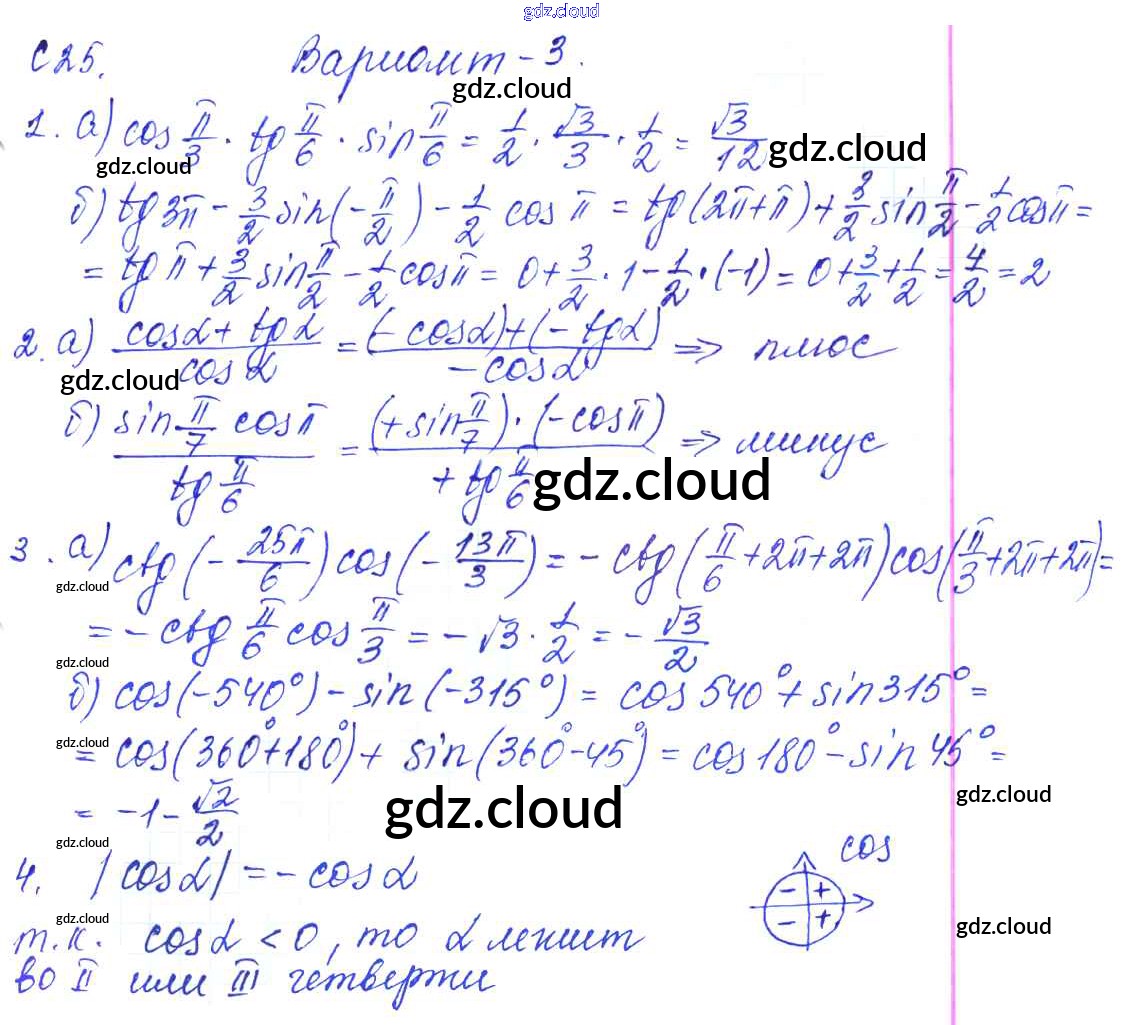 gdz.cloud
С25. Вариант - 3.
gdz.cloud
1. а) cos π/3 · tg π/6 · sin π/6 = 1/2 · √3/3 · 1/2 = √3/12
gdz.cloud gdz.cloud
б) tg 3π - 3/2 sin(-π/2) - 1/2 cos π = tg(2π+π) + 3/2 sin π/2 - 1/2 cos π =
= tg π + 3/2 sin π/2 - 1/2 cos π = 0 + 3/2 · 1 - 1/2 · (-1) = 0 + 3/2 + 1/2 = 4/2 = 2
2. а) (cos α + tg α)/(cos α) = ((- cos α) + (- tg α))/(- cos α) => плюс
gdz.cloud
б) (sin π/7 cos π)/(tg π/6) = ((+ sin π/7) · (- cos π))/(+ tg π/6) => минус
gdz.cloud
3. а) ctg(-25π/6) cos(-13π/3) = - ctg(π/6 + 2π + 2π) cos(π/3 + 2π + 2π) =
gdz.cloud
= - ctg π/6 cos π/3 = - √3 · 1/2 = - √3/2
gdz.cloud
б) cos(-540°) - sin(-315°) = cos 540° + sin 315° =
= cos(360°+180°) + sin(360°-45°) = cos 180° - sin 45° =
gdz.cloud
= -1 - √2/2
gdz.cloud gdz.cloud
gdz.cloud
4. |cos α| = - cos α
cos
- +
- +
gdz.cloud gdz.cloud
т.к. cos α < 0, то α лежит
во II или III четверти